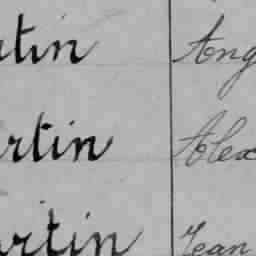 rtin Ang
rtin Alex
artin Jean